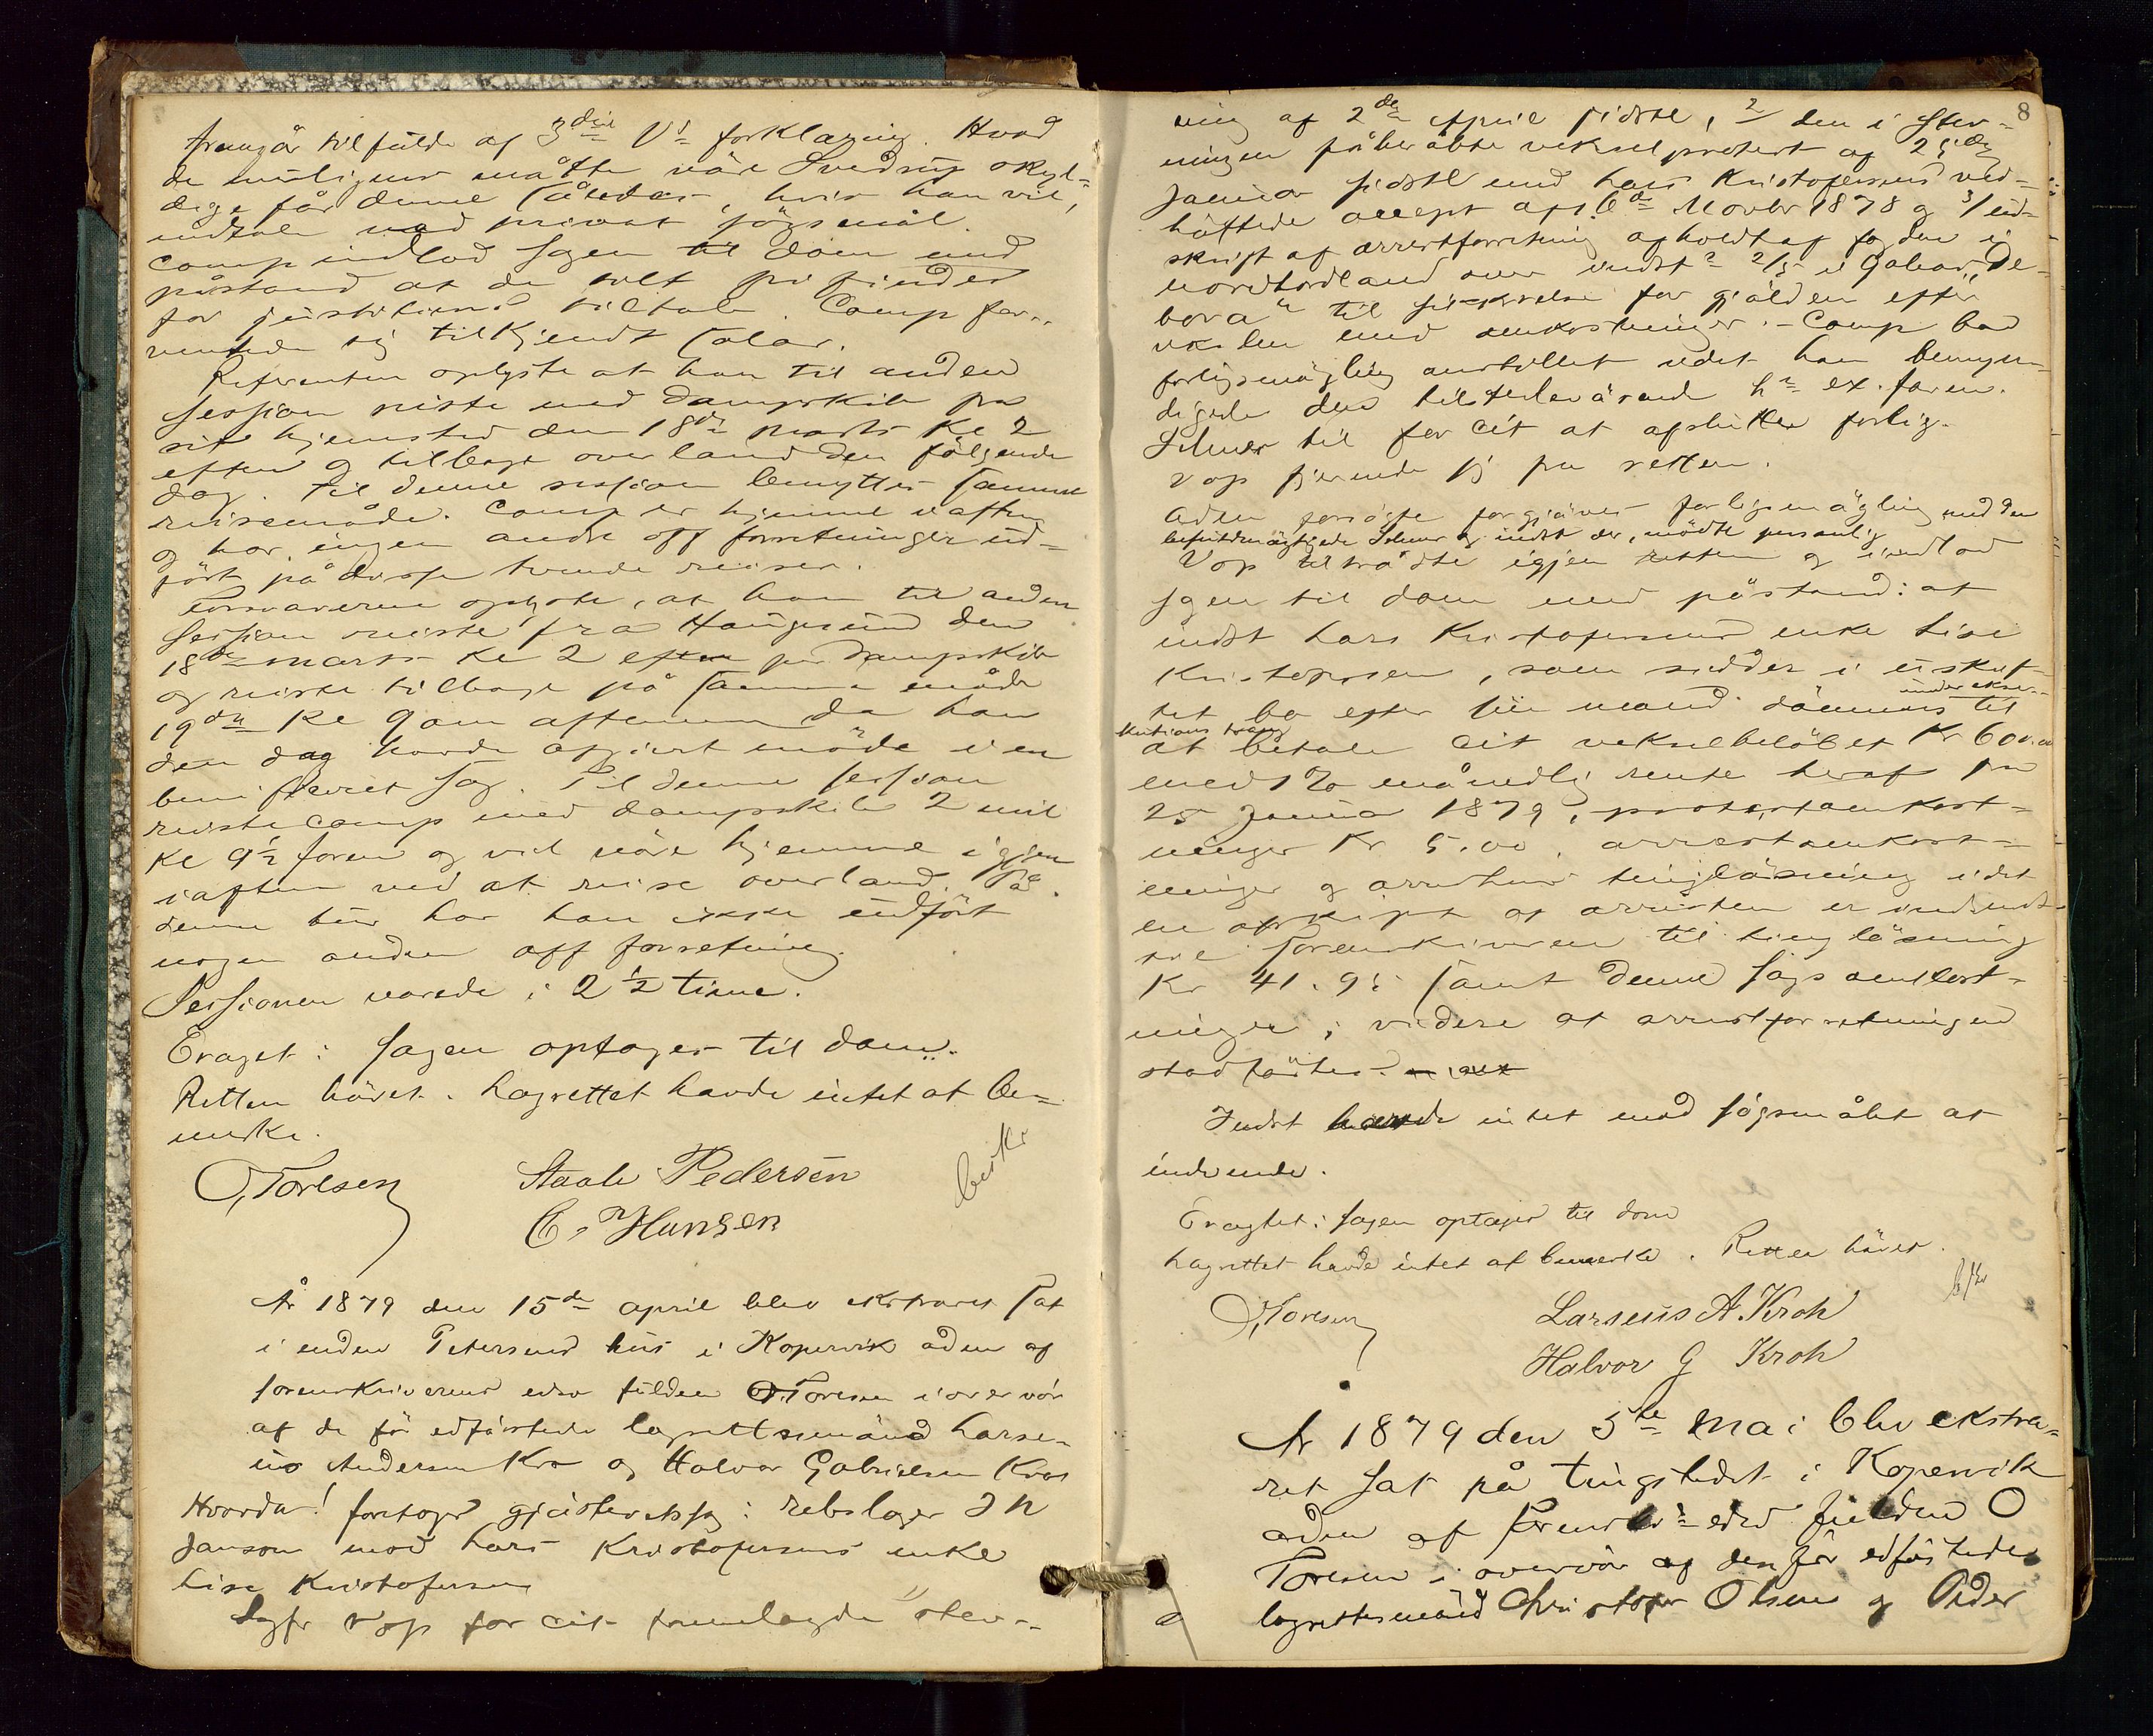 fremgår tilfulde af 3die Vs forklaring. Hvad
de muligens måtte være Svedrup skyl-
dige får denne således, hvis han vil,
indtale ved privat søgsmål.
Comp indlod sagen til dom med
påstand at de tilt frifindes
for justitiens tiltale. Comp for-
ventede sig tilkjendt salær.
Referenten oplyste at han til anden
session reiste med dampskib fra
sit hjemsted den 18de marts kl 2
efterm og tilbage over land den følgende
dag. Til denne session benyttes samme
reisemåde. Comp er hjemme i aften
og har ingen andre off forretninger ud-
ført på disse tvende reiser.
Forsvareren oplyste, at han til anden
session reiste fra Haugesund den
18de marts kl 2 efterm pr dampskib
og reiste tilbage på samme måde
19de kl 9 om aftenen da han
den dag havde afgivet møde i en
benificeret sag. Til denne session
reiste comp med dampskib 2 mil
kl 9½ form og vil være hjemme igjen
iaften ved at reise over land. På
denne tur har han ikke udført
nogen anden off forretning.
Sessionen varede i 2½ time.
Eragtet: sagen optages til dom.
Retten hævet. Lagrettet havde intet at be-
merke.
O, Toresen Staale Pedersen beskr
C. Hansen
År 1879 den 15de april blev ekstraret sat
i enken Petersens hus i Kopervik aden af
sorenskriverens edsv fuldm O Toresen i overvær
af de før edfæstede lagrettesmænd Larse-
nius Andersen Kro og Halvor Gabrielsen Kro
Hvorda! foretoges gjæsteretssag: rebslager J N
Janson mod Lars Kristofersens enke
Lise Kristofersen
Sagfr Vop for cit fremlagde stev-
8
ning af 2den april sidstl, 2/ den i stev-
ningen påberåbte vekselprotest af 25de
januar sidstl med Lars Kristofersens ved-
hæftede accept af de Novbr 1878 og 3/ ud-
skrift af arrestforretning afholdt af fogden i
nordhordland over indst 2/5 i galeas De-
bora til sikkerhed for gjælden efter
vekslen med omkostninger. Comp bad
forligsmægling anstillet idet han bemyn-
digede den tilstedeværende hr ex. faren.
til for cit at afslutte forlig.
Vop fjernede sig fra retten.
Aden forsøgte forgjæves forligsmægling med den
befuldmægtigede og indst der, mødte personlig
Vop tiltrådte igjen retten og indlod
sagen til dom med påstand: at
indst Lars Kristofersens enke Lise
Kristofersen, som sidder i uskift-
tet bo efter sin mand dømmes til
under ekse-
kutions tvang
at betale cit vekselbeløbet Kr 600.00
med 1% månedlig rente heraf fra
25 januar 1879, protestomkost-
ninger Kr 5.00, arrestomkost-
ninger og arrestens tinglæsning idet
en afskrift af arresten er indsendt
til sorenskriveren til tinglæsning
Kr 41.95 samt denne sags omkost-
ninger; videre at arrestforretningen
stadfæstes.
Indst havde intet mod søgsmålet at
indvende.
Eragtet: sagen optages til dom
Lagrettet havde intet at bemerke. Retten hævet.
O, Toresen Larseius A. Kroh
Halvor G Kroh
År 1879 den 5te Mai blev ekstra-
ret sat på tingstedet i Kopervik
aden af sorenskrs edsv fuldm O
Toresen i overvær af den før edfæstede
lagrettesmænd Christofer Olsen og Peder